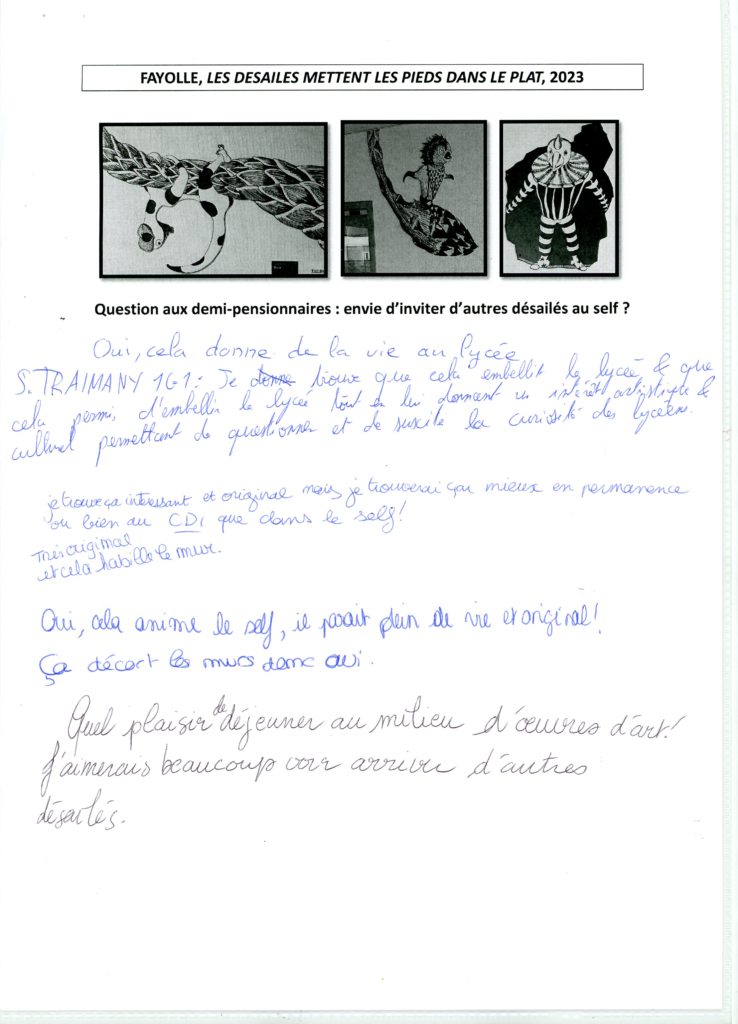 FAYOLLE, LES DESAILES METTENT LES PIEDS DANS LE PLAT, 2023
Question aux demi-pensionnaires : envie d'inviter d'autres désailés au self ?
Oui, cela donne de la vie au lycée
S. TRAIMANY 1G1 : Je donne trouve que cela embellit le lycée & que
cela permi, d'embellir le lycée tout en lui donnant un intérêt artistique &
culturel permettant de questionner et de suscite la curiosité des lycéens.
je trouve ça intéressant et original mais je trouverai ça mieux en permanence
ou bien au CDI que dans le self!
Très original
et cela habille le mur.
Oui, cela anime le self, il parait plein de vie et original!
Ça décort les murs donc oui.
Quel plaisir de déjeuner au milieu d'œuvres d'art!
J'aimerais beaucoup voir arriver d'autres
désailés.